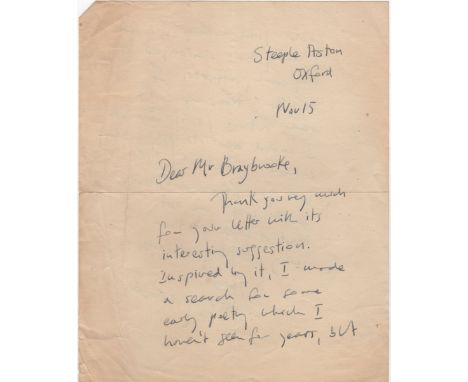 Steeple Aston
Oxford
Nov 15
Dear Mr Braybrooke,
Thank you very much
for your letter with its
interesting suggestion.
Inspired by it, I made
a search for some
early poetry which I
haven't seen for years, but